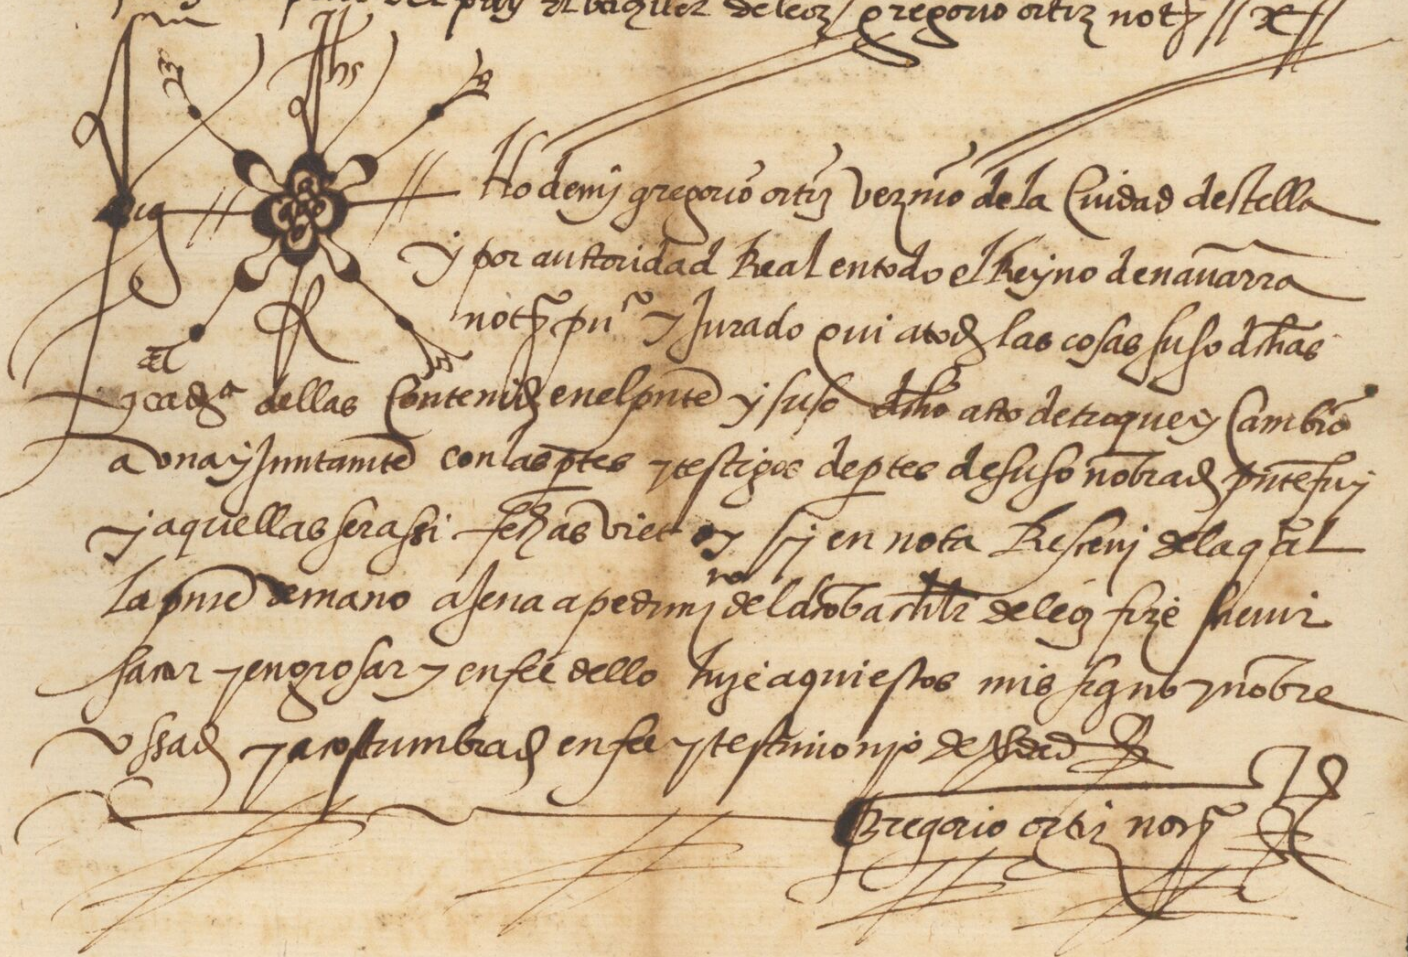 del puy el bachiller de leoz gregorio ortiz not
Jhs
Sig no de mj gregorio ortiz vezino de la Ciudad destella
y por auctoridad Real en todo el Reyno de nauarra
notº puº y Jurado qui a todas las cosas suso dichas
y cada dellas Contenidas en el pnte y suso dicho acto de trueque y Cambio
a vna y Juntamte con las ptes y testigos de ptes de suso nobrads pnte fuy
y aquellas ser assi fechas vi et oy y en nota Resceuj de la qual
la pnte de mano agena a pedimjto del dicho bachiller de leoz fize screuir
sacar y engrosar y en fee dello puse aqui estos mis signo y nobre
vssads y acostumbrads en fee y testimonjo de verdad
Gregorio ortiz notº